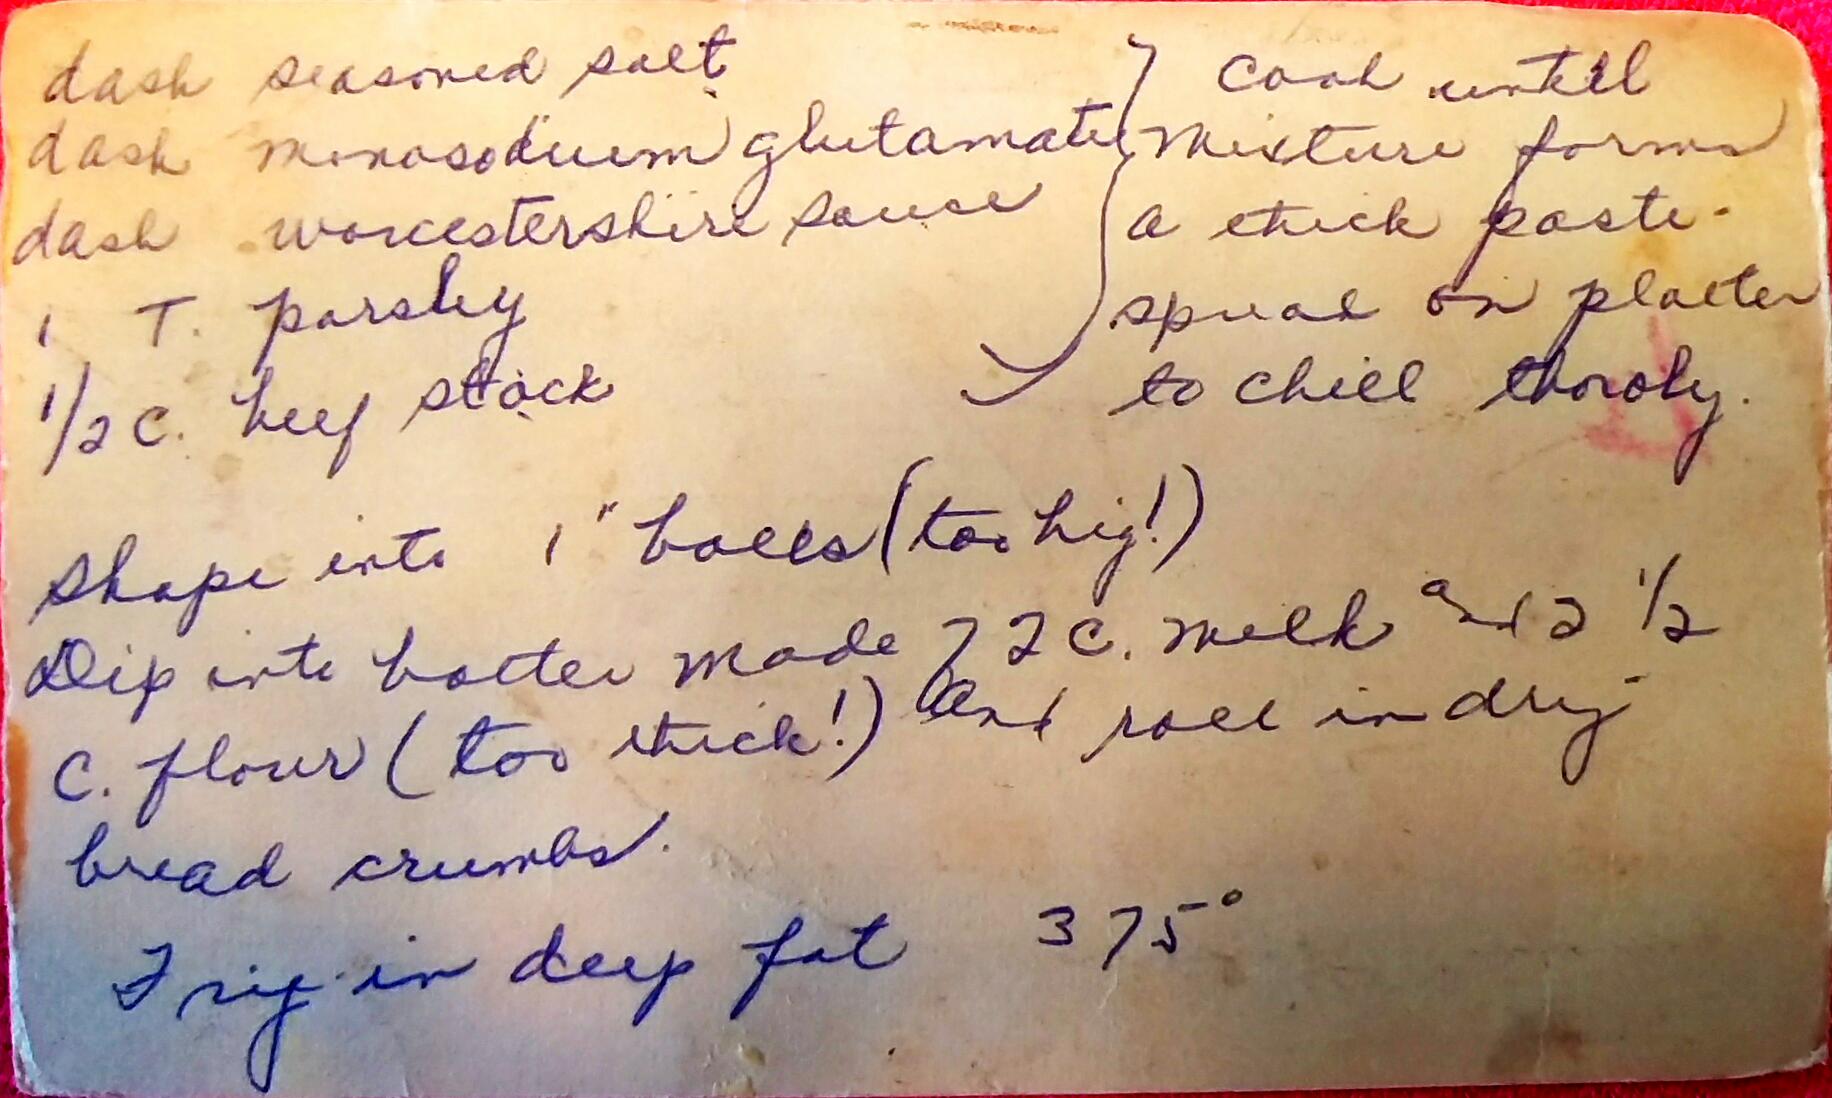 dash seasoned salt
dash monosodium glutamate
dash worcestershire sauce
1 T. parsley
1/2 C. beef stock
Cook until
mixture forms
a thick paste.
spread on platter
to chill thoroly.
Shape into 1" balls (too big!)
Dip into batter made 7 2 C. milk and 2 1/2
C. flour (too thick!) and roll in dry
bread crumbs.
Fry in deep fat 375°